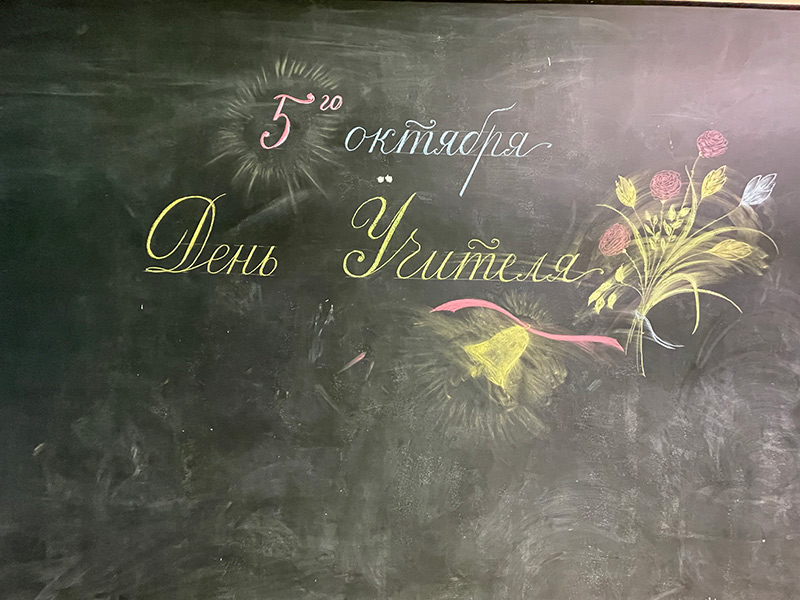 5го октября
День Учителя